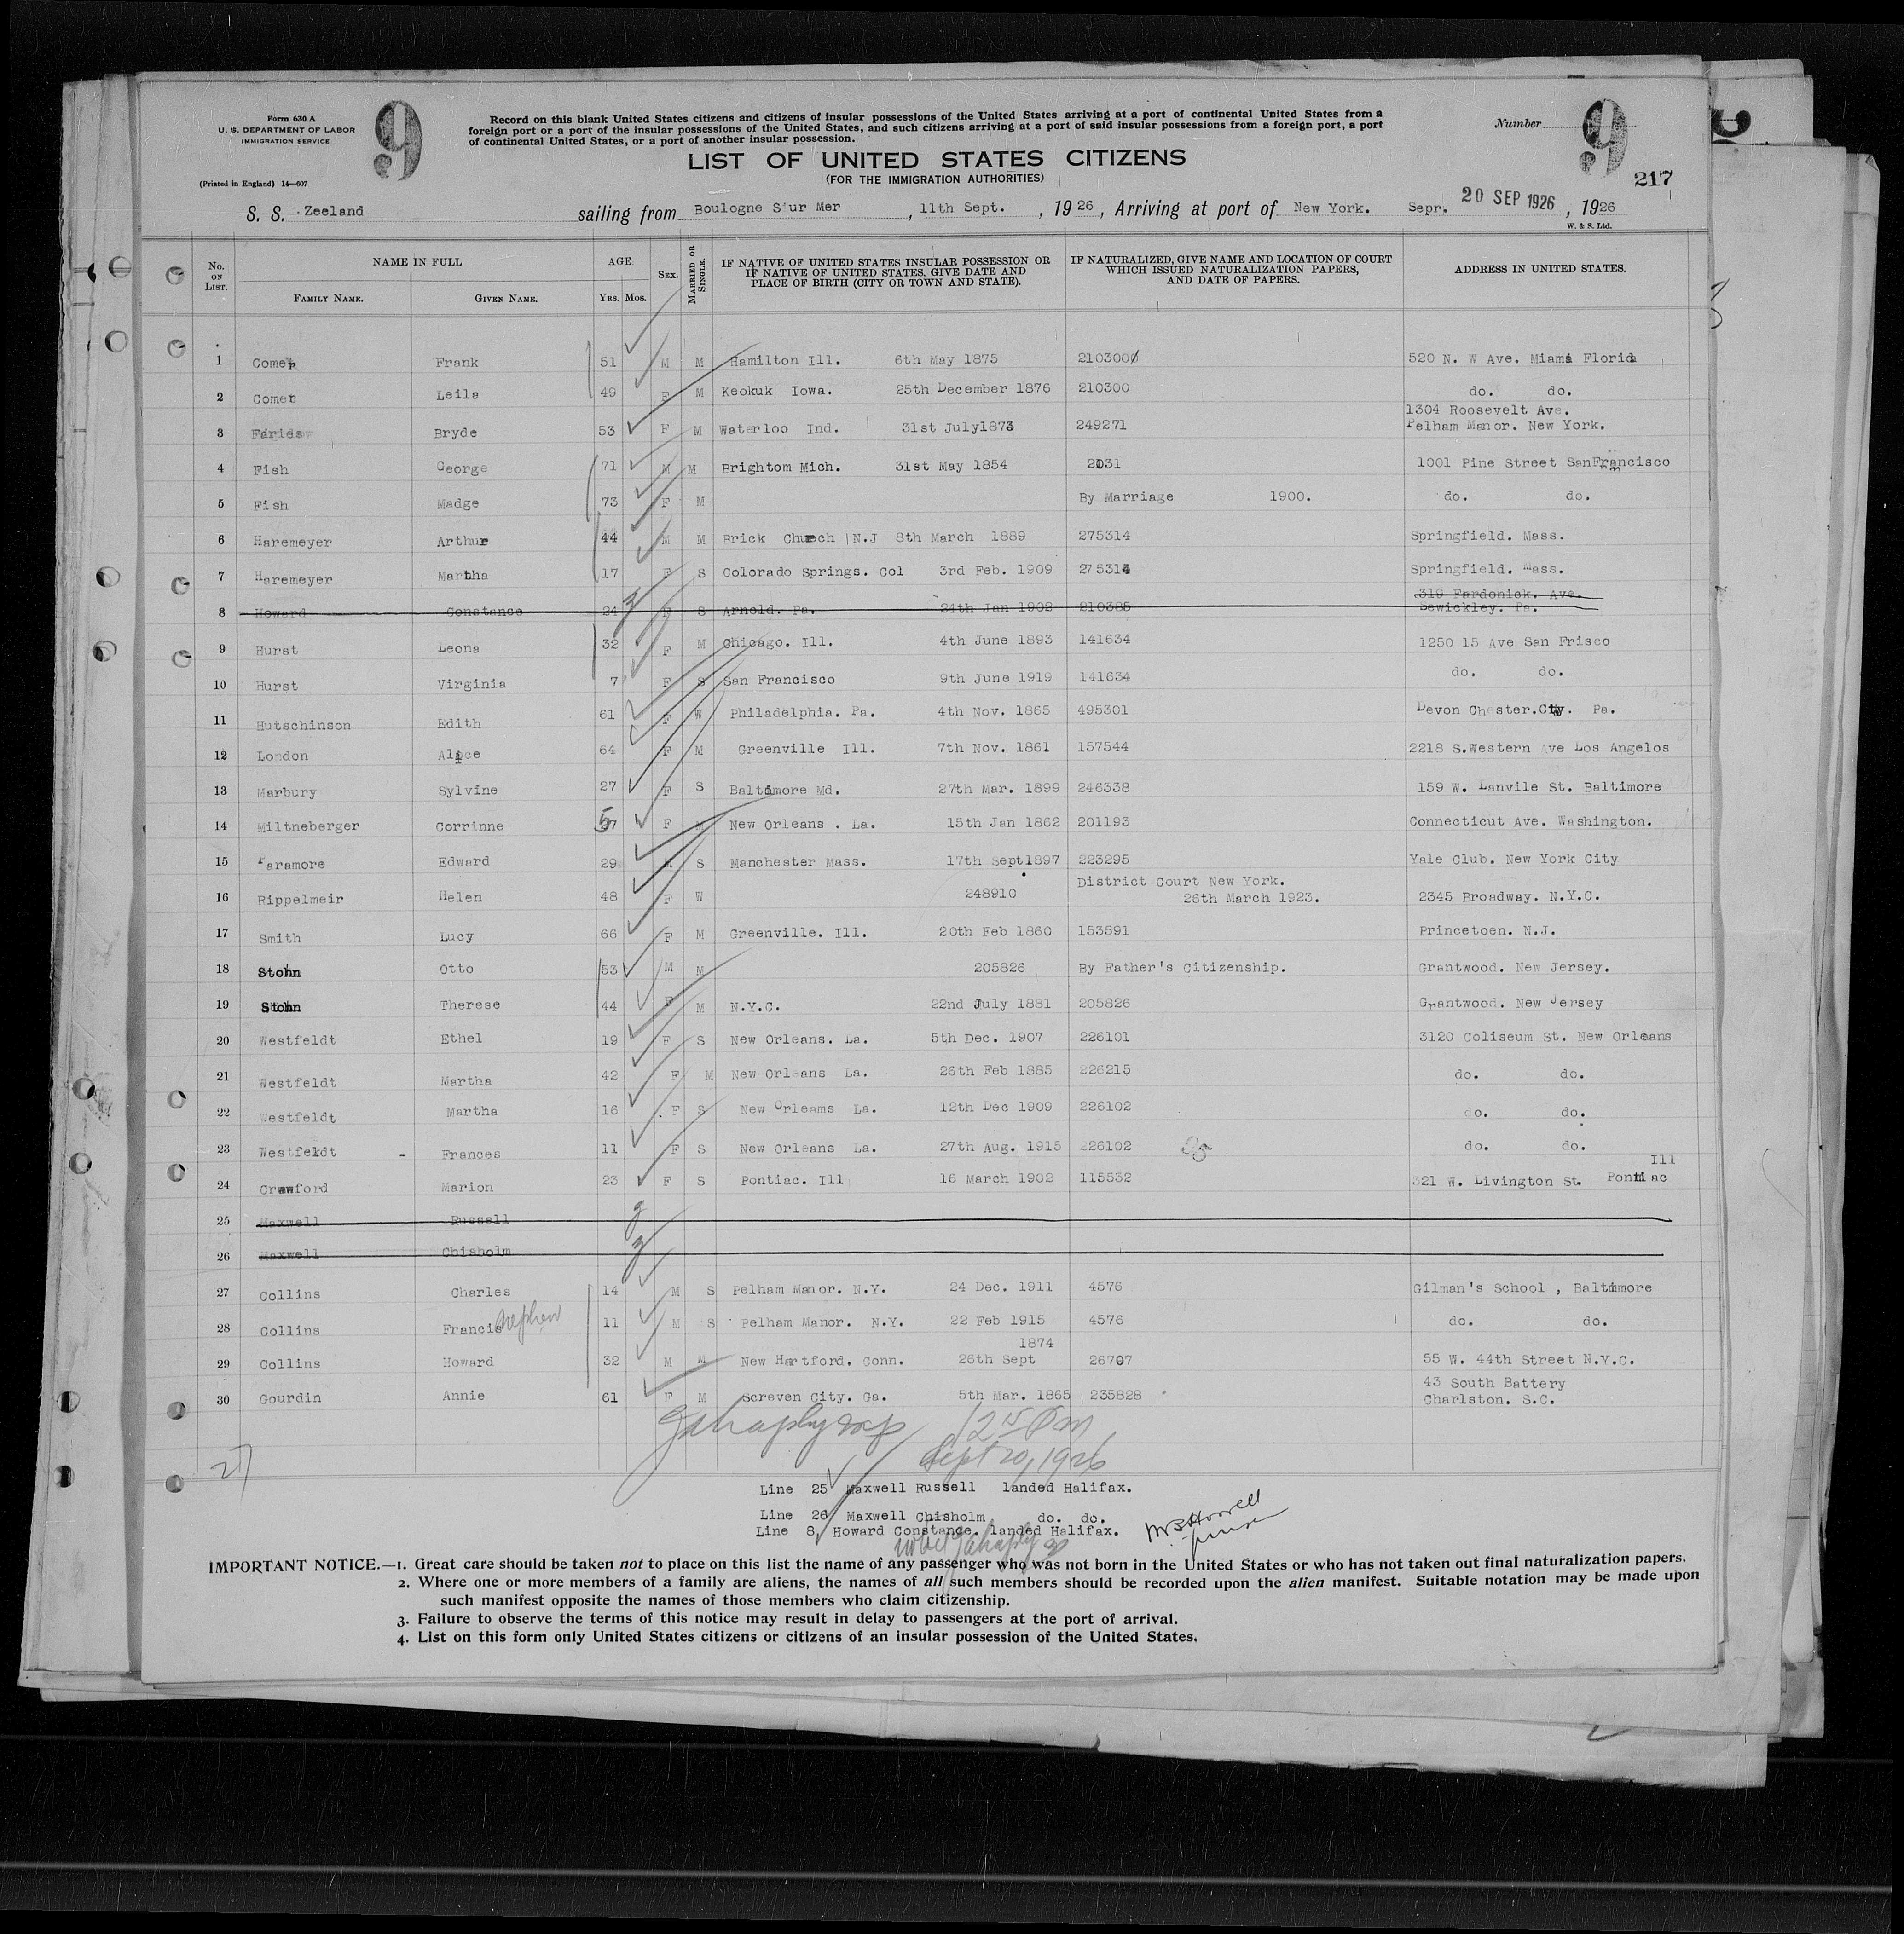 Form 630 A
U. S. DEPARTMENT OF LABOR
IMMIGRATION SERVICE
(Printed in England) 14—607
9
Record on this blank United States citizens and citizens of insular possessions of the United States arriving at a port of continental United States from a
foreign port or a port of the insular possessions of the United States, and such citizens arriving at a port of said insular possessions from a foreign port, a port
of continental United States, or a port of another insular possession.
Number 9
217
LIST OF UNITED STATES CITIZENS
(FOR THE IMMIGRATION AUTHORITIES)
S. S. Zeeland sailing from Boulogne S'ur Mer, 11th Sept., 1926, Arriving at port of New York. Sepr. 20 SEP 1926, 1926
W. & S. Ltd.
No. ON LIST. NAME IN FULL FAMILY NAME. GIVEN NAME. AGE. YRS. MOS. SEX. MARRIED OR SINGLE. IF NATIVE OF UNITED STATES INSULAR POSSESSION OR IF NATIVE OF UNITED STATES, GIVE DATE AND PLACE OF BIRTH (CITY OR TOWN AND STATE). IF NATURALIZED, GIVE NAME AND LOCATION OF COURT WHICH ISSUED NATURALIZATION PAPERS, AND DATE OF PAPERS. ADDRESS IN UNITED STATES.
1 Comer Frank 51 M M Hamilton Ill. 6th May 1875 210300 520 N. W Ave. Miami Florida
2 Comer Leila 49 F M Keokuk Iowa. 25th December 1876 210300 do. do.
3 Bryde 53 F M Waterloo Ind. 31st July1873 249271 1304 Roosevelt Ave. Pelham Manor. New York.
4 Fish George 71 M M Brightom Mich. 31st May 1854 2031 1001 Pine Street SanFrancisco
5 Fish Madge 73 F M By Marriage 1900. do. do.
6 Haremeyer Arthur 44 M M Brick Church N.J 8th March 1889 275314 Springfield. Mass.
7 Haremeyer Martha 17 F S Colorado Springs. Col 3rd Feb. 1909 275314 Springfield. Mass.
8 Howard Constance 24 F S Arnold. Pa. 24th Jan 1902 210385 319 Fardonick. Ave. Sewickley. Pa.
9 Hurst Leona 32 F M Chicago. Ill. 4th June 1893 141634 1250 15 Ave San Frisco
10 Hurst Virginia 7 F S San Francisco 9th June 1919 141634 do. do.
11 Hutschinson Edith 61 F W Philadelphia. Pa. 4th Nov. 1865 495301 Devon Chester.City. Pa.
12 London Alice 64 F M Greenville Ill. 7th Nov. 1861 157544 2218 S.Western Ave Los Angelos
13 Marbury Sylvine 27 F S Baltimore Md. 27th Mar. 1899 246338 159 W. Lanvile St. Baltimore
14 Miltneberger Corrinne 57 F M New Orleans . La. 15th Jan 1862 201193 Connecticut Ave. Washington.
15 Paramore Edward 29 M S Manchester Mass. 17th Sept1897 223295 Yale Club. New York City
16 Rippelmeir Helen 48 F W 248910 District Court New York. 26th March 1923. 2345 Broadway. N.Y.C.
17 Smith Lucy 66 F M Greenville. Ill. 20th Feb 1860 153591 Princetoen. N.J.
18 Stohn Otto 53 M M 205826 By Father's Citizenship. Grantwood. New Jersey.
19 Stohn Therese 44 F M N.Y.C. 22nd July 1881 205826 Grantwood. New Jersey
20 Westfeldt Ethel 19 F S New Orleans. La. 5th Dec. 1907 226101 3120 Coliseum St. New Orleans
21 Westfeldt Martha 42 F M New Orleans La. 26th Feb 1885 226215 do. do.
22 Westfeldt Martha 16 F S New Orleams La. 12th Dec 1909 226102 do. do.
23 Westfeldt - Frances 11 F S New Orleans La. 27th Aug. 1915 226102 do. do.
24 Crawford Marion 23 F S Pontiac. Ill 16 March 1902 115532 321 W. Livington St. Pontiac Ill
25 Maxwell Russell
26 Maxwell Chisholm
27 Collins Charles 14 M S Pelham Manor. N.Y. 24 Dec. 1911 4576 Gilman's School , Baltimore
28 Collins Francis Stephen 11 M S Pelham Manor. N.Y. 22 Feb 1915 4576 do. do.
29 Collins Howard 32 M M New Hartford. Conn. 26th Sept 1874 26707 55 W. 44th Street N.Y.C.
30 Gourdin Annie 61 F M Screven City. Ga. 5th Mar. 1865 235828 43 South Battery Charlston. S.C.
Sept 20, 1926
27
Line 25 Maxwell Russell landed Halifax.
Line 26 Maxwell Chisholm do. do.
Line 8, Howard Constance. landed Halifax.
IMPORTANT NOTICE.—1. Great care should be taken not to place on this list the name of any passenger who was not born in the United States or who has not taken out final naturalization papers.
2. Where one or more members of a family are aliens, the names of all such members should be recorded upon the alien manifest. Suitable notation may be made upon
such manifest opposite the names of those members who claim citizenship.
3. Failure to observe the terms of this notice may result in delay to passengers at the port of arrival.
4. List on this form only United States citizens or citizens of an insular possession of the United States.